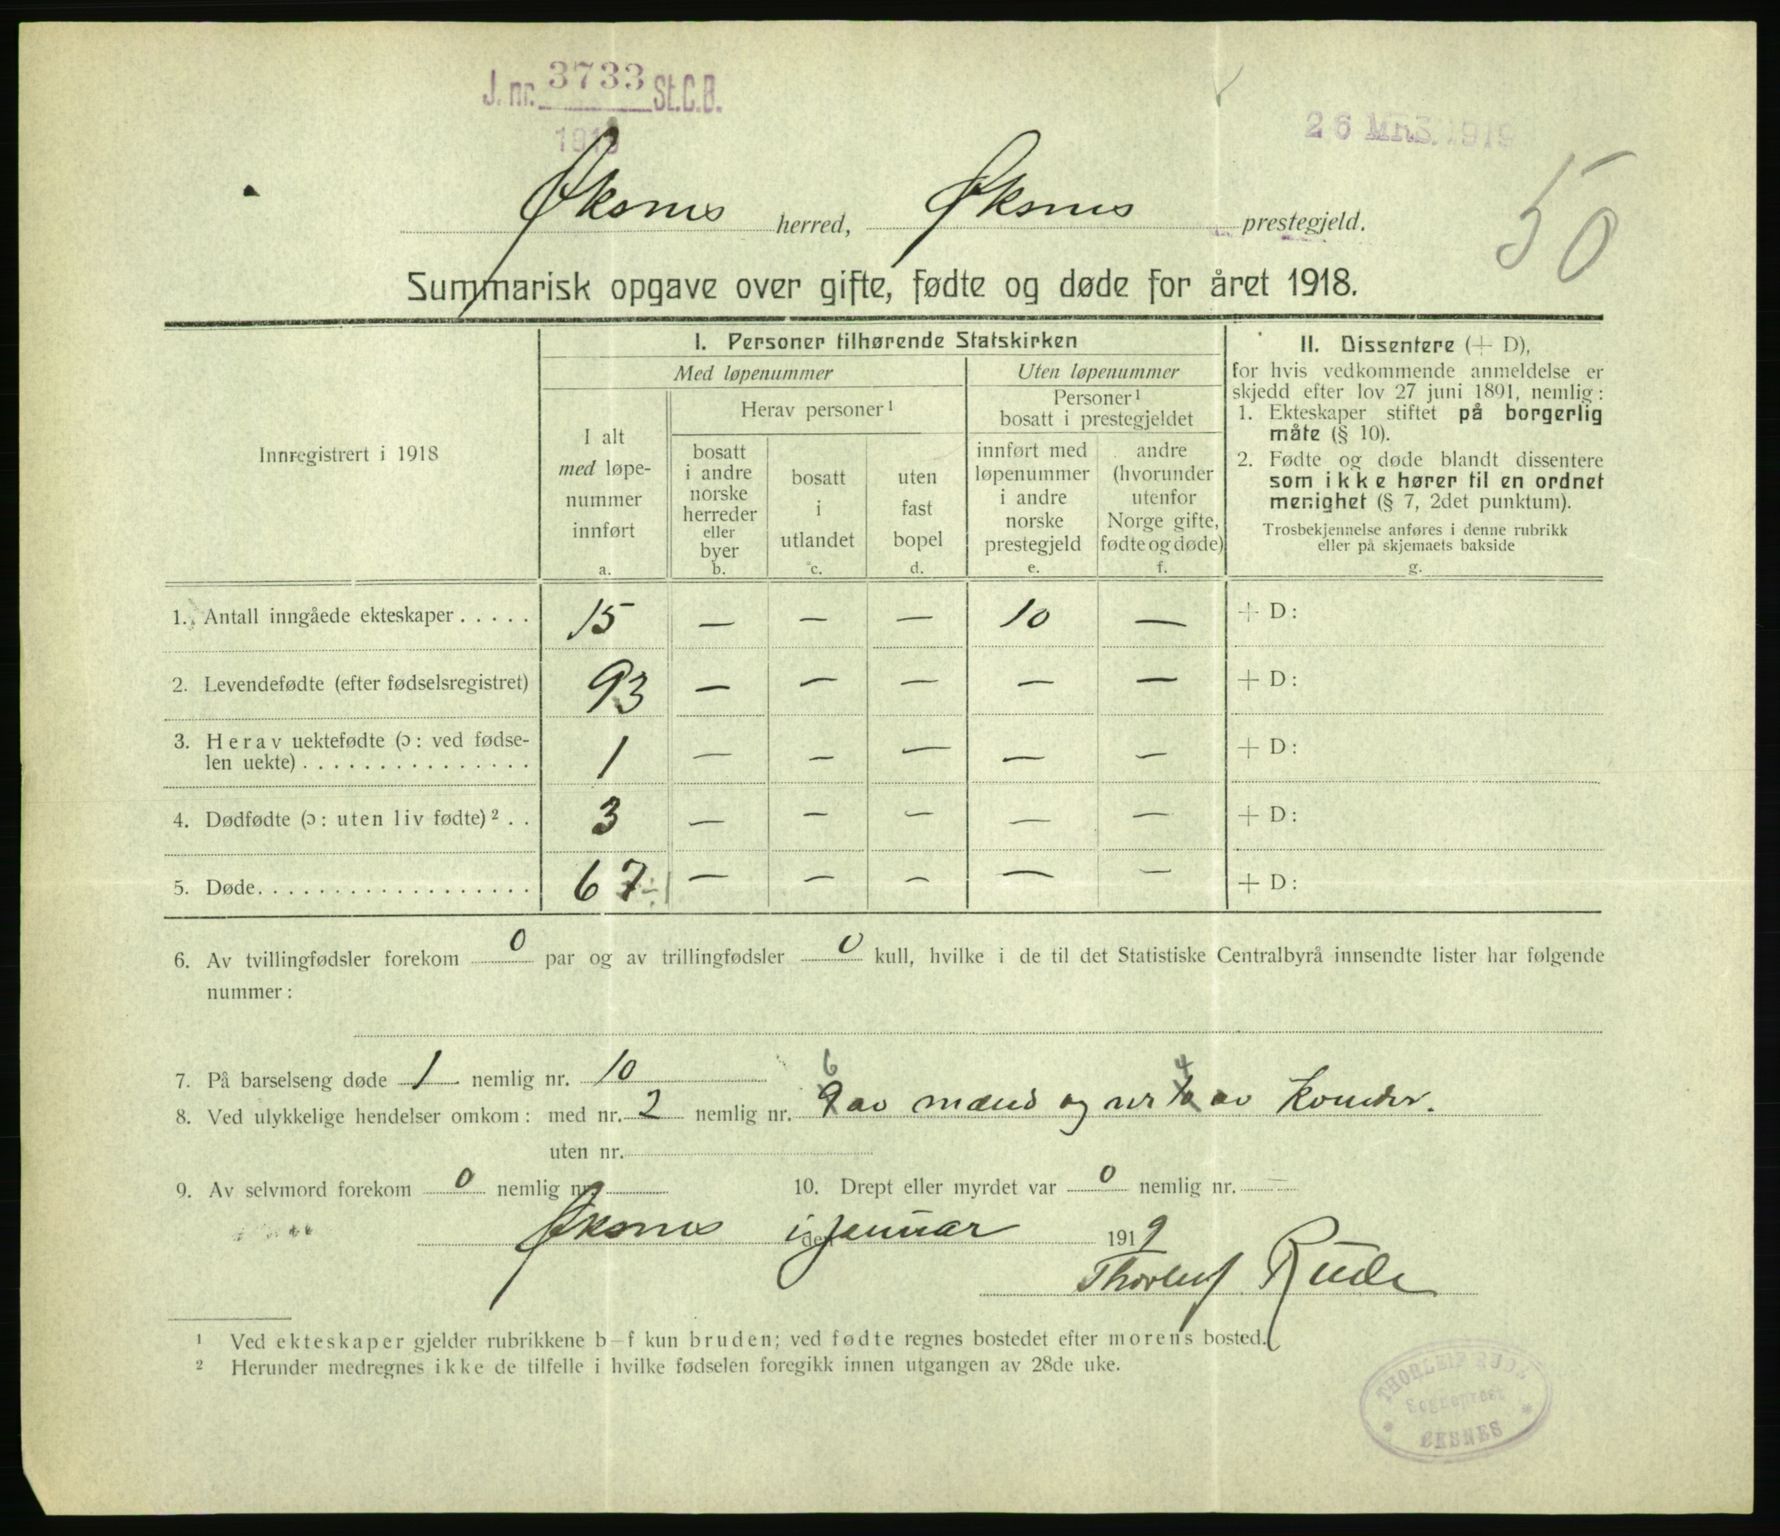 J. nr. 3733 St.C.B.
1919
26 MRS. 1919
50
Øksnes herred, Øksnes prestegjeld.
Summarisk opgave over gifte, fødte og døde for året 1918.
Innregistrert i 1918
I. Personer tilhørende Statskirken
Med løpenummer
Uten løpenummer
I alt
med løpe-
nummer
innført
a.
Herav personer¹
bosatt
i andre
norske
herreder
eller
byer
b.
bosatt
i
utlandet
c.
uten
fast
bopel
d.
Personer¹
bosatt i prestegjeldet
innført med
løpenummer
i andre
norske
prestegjeld
e.
andre
(hvorunder
utenfor
Norge gifte,
fødte og døde)
f.
II. Dissentere (+ D),
for hvis vedkommende anmeldelse er
skjedd efter lov 27 juni 1891, nemlig:
1. Ekteskaper stiftet på borgerlig
måte (§ 10).
2. Fødte og døde blandt dissentere
som ikke hører til en ordnet
menighet (§ 7, 2det punktum).
Trosbekjennelse anføres i denne rubrikk
eller på skjemaets bakside
g.
1. Antall inngåede ekteskaper . . . . . 15 — — — 10 — + D:
2. Levendefødte (efter fødselsregistret) 93 — — — — — + D:
3. Herav uektefødte (ɔ: ved fødse-
len uekte) . . . . . . . . . . . . . . . 1 — — — — — + D:
4. Dødfødte (ɔ: uten liv fødte)² . . 3 — — — — — + D:
5. Døde. . . . . . . . . . . . . . . . . . 67 — — — — — + D:
6. Av tvillingfødsler forekom 0 par og av trillingfødsler 0 kull, hvilke i de til det Statistiske Centralbyrå innsendte lister har følgende
nummer:
7. På barselseng døde 1 nemlig nr. 10
8. Ved ulykkelige hendelser omkom: med nr. 2 nemlig nr. 6 av mænd og nr 4 av kvinder.
uten nr.
9. Av selvmord forekom 0 nemlig nr.
10. Drept eller myrdet var 0 nemlig nr. —
Øksnes i januar 1919
Thorleif Rude
¹ Ved ekteskaper gjelder rubrikkene b–f kun bruden; ved fødte regnes bostedet efter morens bosted.
² Herunder medregnes ikke de tilfelle i hvilke fødselen foregikk innen utgangen av 28de uke.
THORLEIF RUDE
Sogneprest
ØKSNES